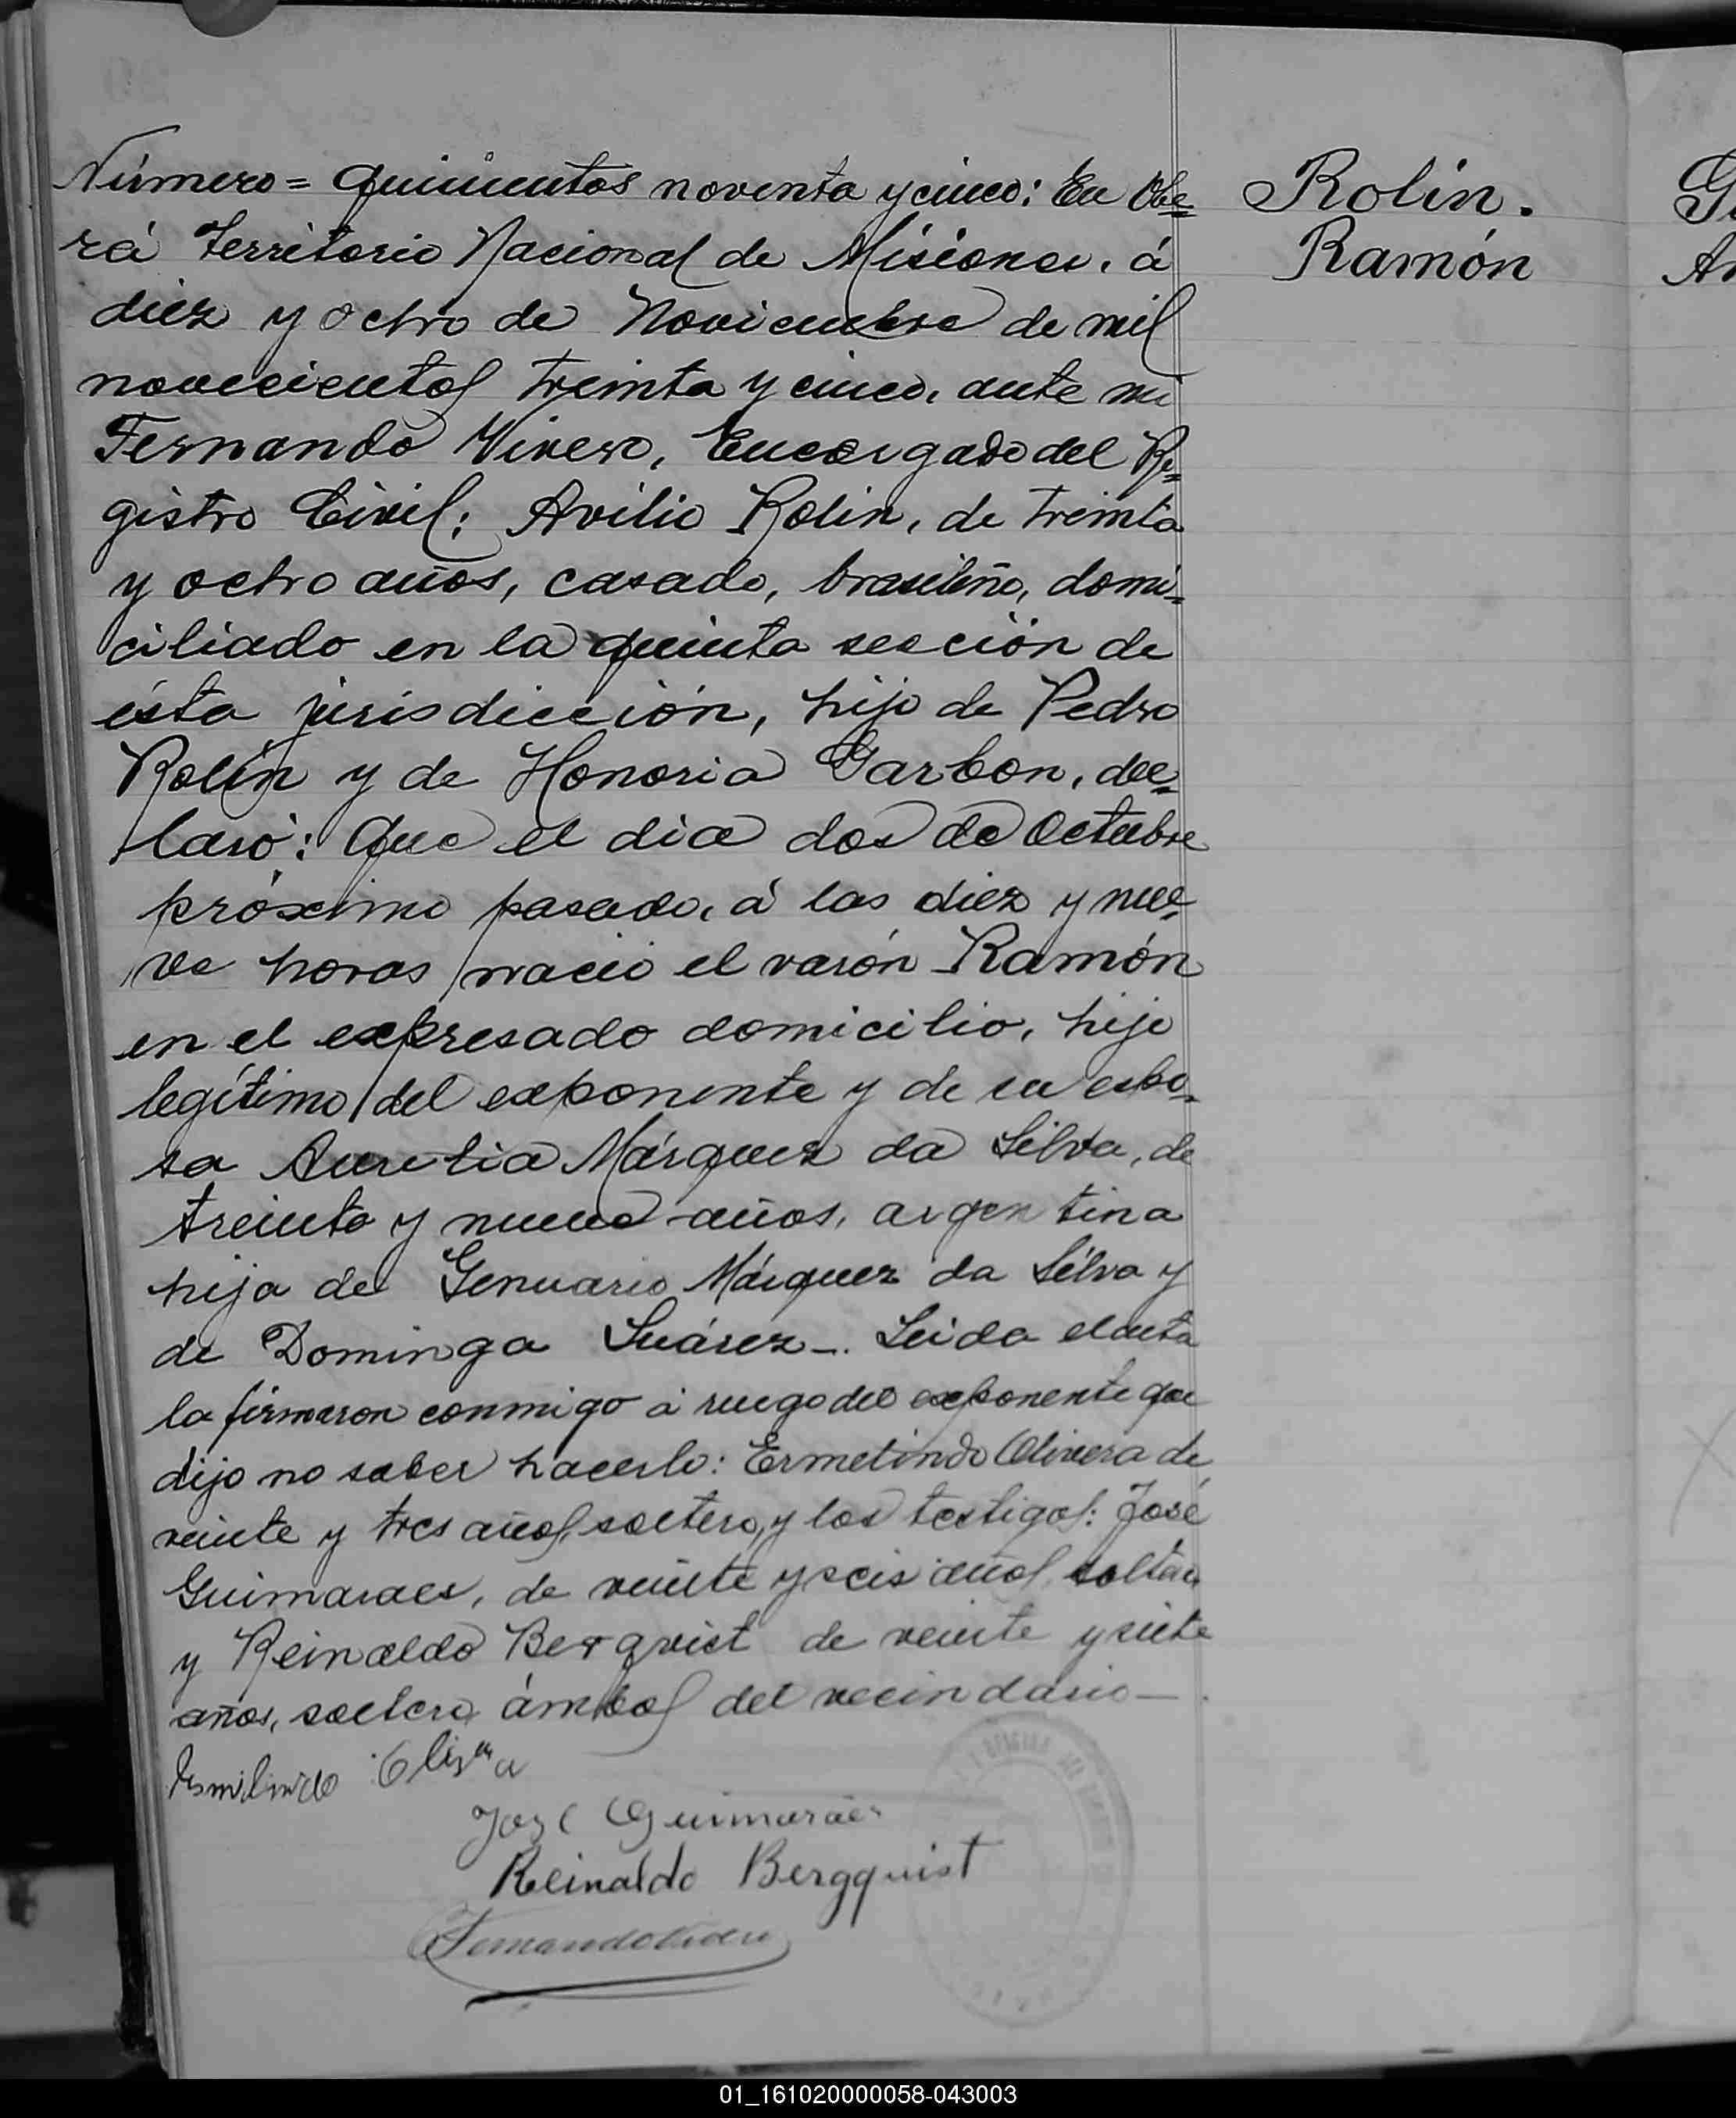 Número = quinientos noventa y cinco: En Obe=
rá Territorio Nacional de Misiones, á
diez y ochro de Noviembre de mil
novecientos treinta y cinco, ante mi
Fernando Vivero, Encargado del Re=
gistro Civil; Avilio Rolin, de treinta
y ochro años, casado, brasileño, domi=
ciliado en la quinta sección de
ésta jurisdicción, hijo de Pedro
Rolin y de Honoria Garbon, dec=
laró: Que el dia dos de Octubre
próximo pasado, á las diez y nue=
ve horas nació el varón Ramón
en el expresado domicilio, hijo
legítimo del exponente y de su espo=
sa Aurelia Márquez da Silva, de
treinta y nueve años, argentina
hija de Genuario Márquez da Silva y
de Dominga Suárez -. Leida el acta
la firmaron conmigo á ruego del exponente que
dijo no saber hacerlo: Ermelindo Olivera de
veinte y tres años, soltero, y los testigos: José
Guimaraes, de veinte y seis años,
y Reinaldo Bergvist de veinte y siete
años, soltero ámbos del vecindario —
Olivera
José Guimarães
Reinaldo Bergquist
Rolin.
Ramón
01_161020000058-043003